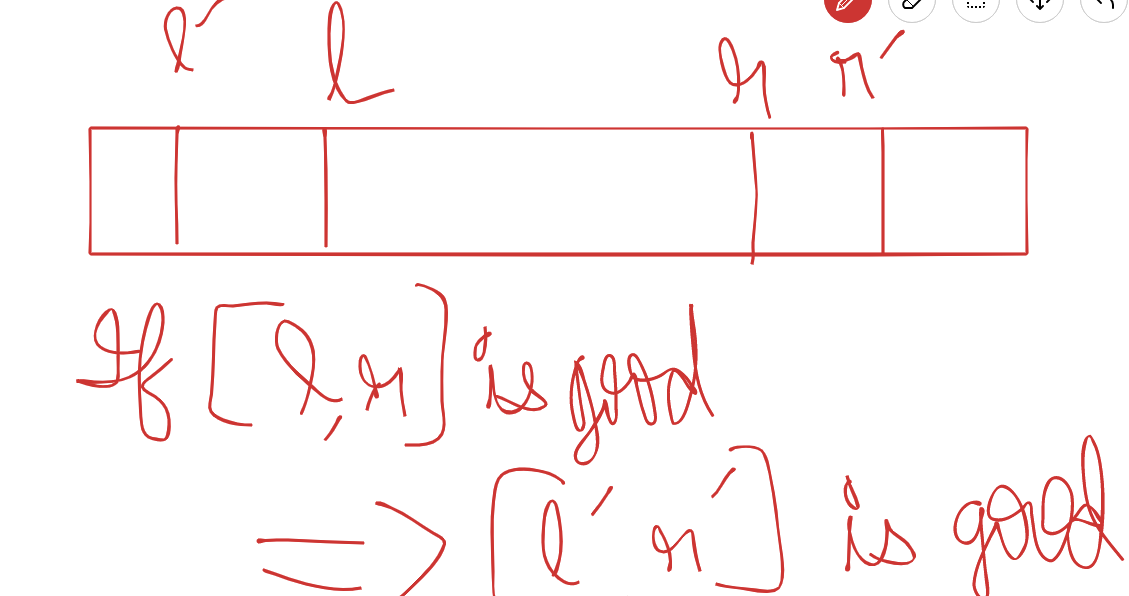 l' l r r'
If [l, r] is good
=> [l' r'] is good